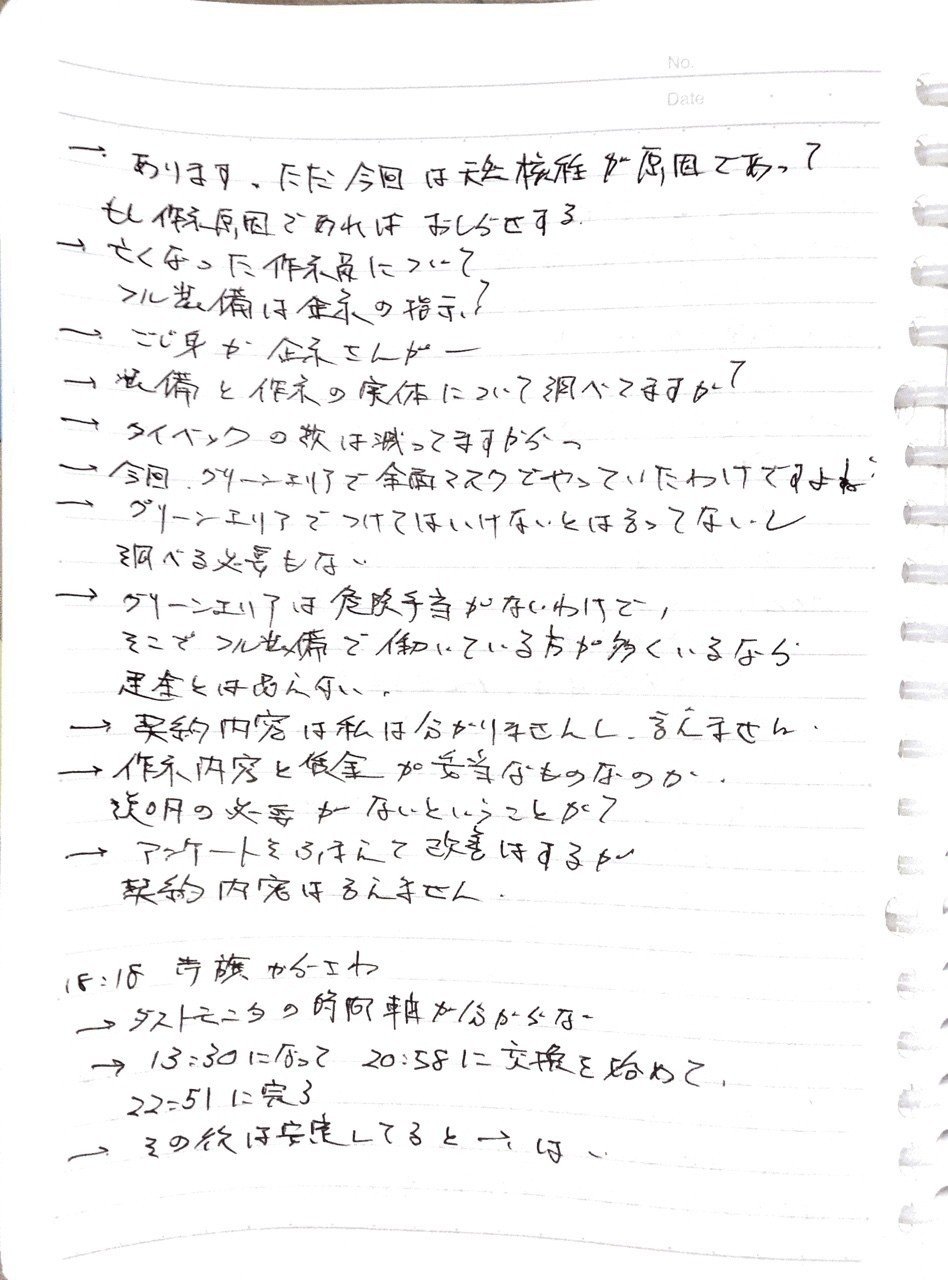 No.
Date
→ あります。ただ今回は天然核種が原因であって
もし作業原因であればおしらせする.
→ 亡くなった作業員について
フル装備は企業の指示?
→ ご自身か企業さんがー
→ 装備と作業の実体について調べてますか?
→ タイベックの数は減ってますから
→ 今回、グリーンエリアで全面マスクでやっていたわけですよね?
→ グリーンエリアでつけてはいけないとは言ってないし
調べる必要もない
→ グリーンエリアは危険手当がないわけで,
そこでフル装備で働いている方が多くいるなら
とはあえない.
→ 契約内容は私は分かりませんし、言えません.
→ 作業内容と賃金が妥当なものなのか.
説明の必要がないということか?
→ アンケートをふまえて改善はするが
契約内容は言えません.
18:18
→ ダストモニタの時間軸が分からない
→ 13:30になって 20:58に交換を始めて,
22:51に完了
→ その後は安定してると→ はい